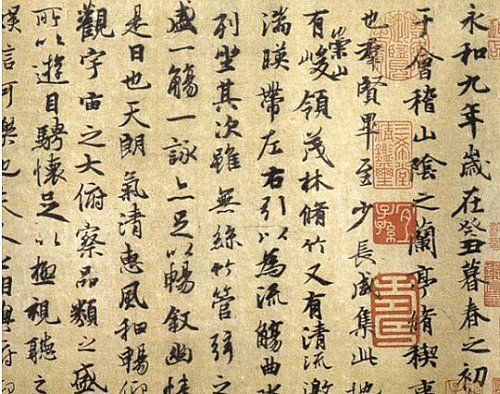 永和九年歲在癸丑暮春之初
于會稽山陰之蘭亭脩稧事
也群賢畢至少長咸集此地
有崇山峻領茂林脩竹又有清流激
湍暎帶左右引以為流觴曲水
列坐其次雖無絲竹管弦之
盛一觴一詠亦足以暢敘幽情
是日也天朗氣清惠風和暢仰
觀宇宙之大俯察品類之盛
所以遊目騁懷足以極視聽之
娛信可樂也夫人之相與俯仰
三希堂精鑑璽
宜子孫